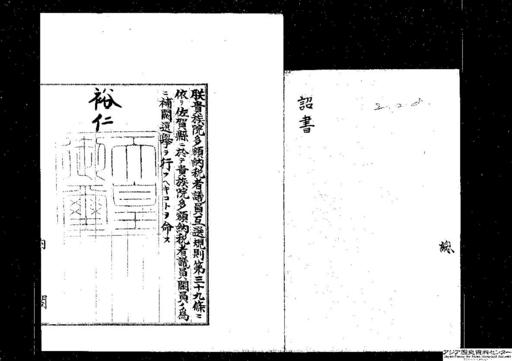 詔書
朕貴族院多額納税者議員互選規則第三十九條ニ
依リ佐賀縣ニ於テ貴族院多額納税者議員闕員ノ為
ニ補闕選擧ヲ行フヘキコトヲ命ス
裕仁
天皇
御璽
内
閣
アジア歴史資料センター